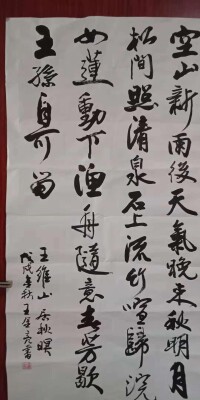 空山新雨後天氣晚来秋明月
松間照清泉石上流竹喧歸浣
女蓮動下漁舟隨意春芳歇
王孫自可留
王維山居秋暝
戊戌秋王書